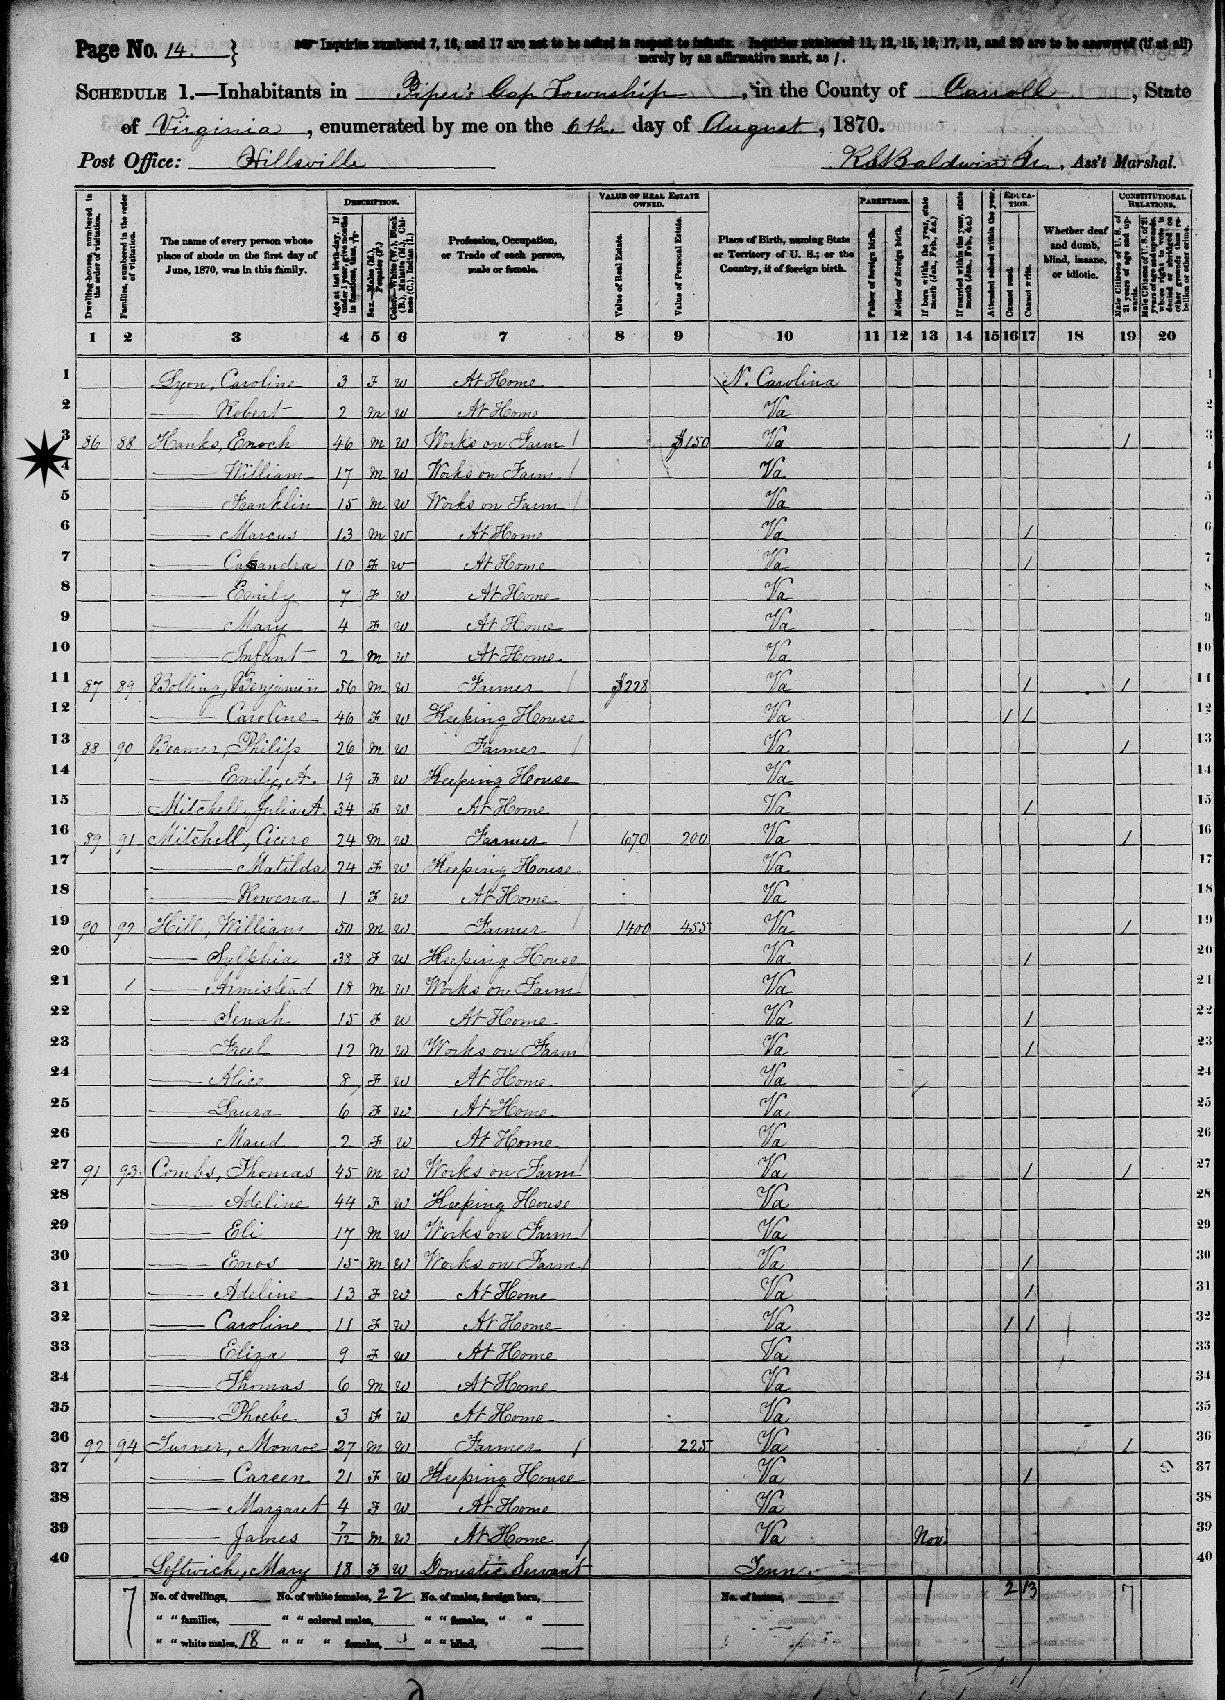 Page No. 14.
Inquiries numbered 7, 16, and 17 are not to be asked in respect to infants. Inquiries numbered 11, 12, 15, 16, 17, 19, and 20 are to be answered (if at all)
merely by an affirmative mark, as /.
SCHEDULE 1.—Inhabitants in Piper's Gap Township, in the County of Carroll, State
of Virginia, enumerated by me on the 6th. day of August, 1870.
Post Office: Hillsville
Baldwin Ass't Marshal.
DESCRIPTION. VALUE OF REAL ESTATE OWNED. PARENTAGE. EDUCATION. CONSTITUTIONAL RELATIONS.
Dwelling-houses, numbered in the order of visitation.
Families, numbered in the order of visitation.
The name of every person whose place of abode on the first day of June, 1870, was in this family.
Profession, Occupation, or Trade of each person, male or female.
Value of Real Estate.
Value of Personal Estate.
Place of Birth, naming State or Territory of U. S.; or the Country, if of foreign birth.
Father of foreign birth.
Mother of foreign birth.
If born within the year, state month (Jan., Feb., &c.)
If married within the year, state month (Jan., Feb., &c.)
Attended school within the year.
Cannot read.
Cannot write.
Whether deaf and dumb, blind, insane, or idiotic.
1 2 3 4 5 6 7 8 9 10 11 12 13 14 15 16 17 18 19 20
1 Lyon, Caroline 3 F W At Home N. Carolina 1
2 —— Robert 2 M W At Home Va 2
3 86 88 Hanks, Enoch 46 M W Works on Farm / $150 Va / 3
4 —— William 17 M W Works on Farm / Va 4
5 —— Franklin 15 M W Works on Farm / Va 5
6 —— Marcus 13 M W At Home Va / 6
7 —— Casandra 10 F W At Home Va / 7
8 —— Emily 7 F W At Home Va 8
9 —— Mary 4 F W At Home Va 9
10 —— Infant 2 M W At Home Va 10
11 87 89 Bolling, Benjamin 56 M W Farmer / $228 Va / / 11
12 —— Caroline 46 F W Keeping House Va / / 12
13 88 90 Beamer, Philip 26 M W Farmer / Va / 13
14 —— Emily A. 19 F W Keeping House Va 14
15 Mitchell, Julia A. 34 F W At Home Va / 15
16 89 91 Mitchell, Cicero 24 M W Farmer / 670 200 Va / 16
17 —— Matilda 24 F W Keeping House Va 17
18 —— Rowena 1 F W At Home Va 18
19 90 92 Hill, William 50 M W Farmer / 1400 455 Va / 19
20 —— Sylphia 38 F W Keeping House Va / 20
21 / —— Armistead 18 M W Works on Farm / Va 21
22 —— Senah 15 F W At Home Va / 22
23 —— Freel 12 M W Works on Farm / Va / 23
24 —— Alice 8 F W At Home Va 24
25 —— Laura 6 F W At Home Va 25
26 —— Maud 2 F W At Home Va 26
27 91 93 Combs, Thomas 45 M W Works on Farm / Va / / 27
28 —— Adeline 44 F W Keeping House Va 28
29 —— Eli 17 M W Works on Farm / Va 29
30 —— Enos 15 M W Works on Farm / Va / 30
31 —— Adeline 13 F W At Home Va / 31
32 —— Caroline 11 F W At Home Va / / 32
33 —— Eliza 9 F W At Home Va 33
34 —— Thomas 6 M W At Home Va 34
35 —— Phoebe 3 F W At Home Va 35
36 92 94 Turner, Monroe 27 M W Farmer / 225 Va / 36
37 —— Careen 21 F W Keeping House Va / 37
38 —— Margaret 4 F W At Home Va 38
39 —— James 7/12 M W At Home Va Nov. 39
40 Leftwich, Mary 18 F W Domestic Servant / Tenn. 40
7 No. of dwellings, No. of white females, 22 No. of males, foreign born, No. of insane, 1 2 13 7
" " families, " " colored males, " " females, " "
" " white males, 18 " " " females, " " blind,